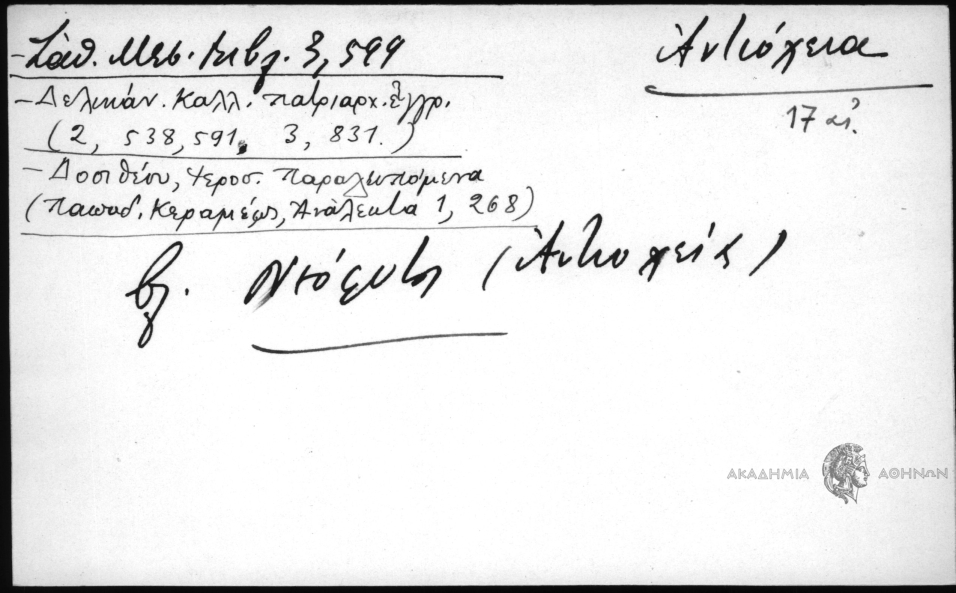 Ἀντιόχεια
17 αἰ.
- Σάθ. Μεσ. Βιβλ. 3, 599
- Δελικάν. Καλλ. Πατριαρχ. Ἔγγρ.
(2, 538, 591, 3, 831.)
- Δοσιθέου, Ἱεροσ. Παραλειπόμενα
(Παπαδ. Κεραμέως, Ἀνάλεκτα 1, 268)
βλ. (Ἀντιοχείας)
ΑΚΑΔΗΜΙΑ ΑΘΗΝΩΝ